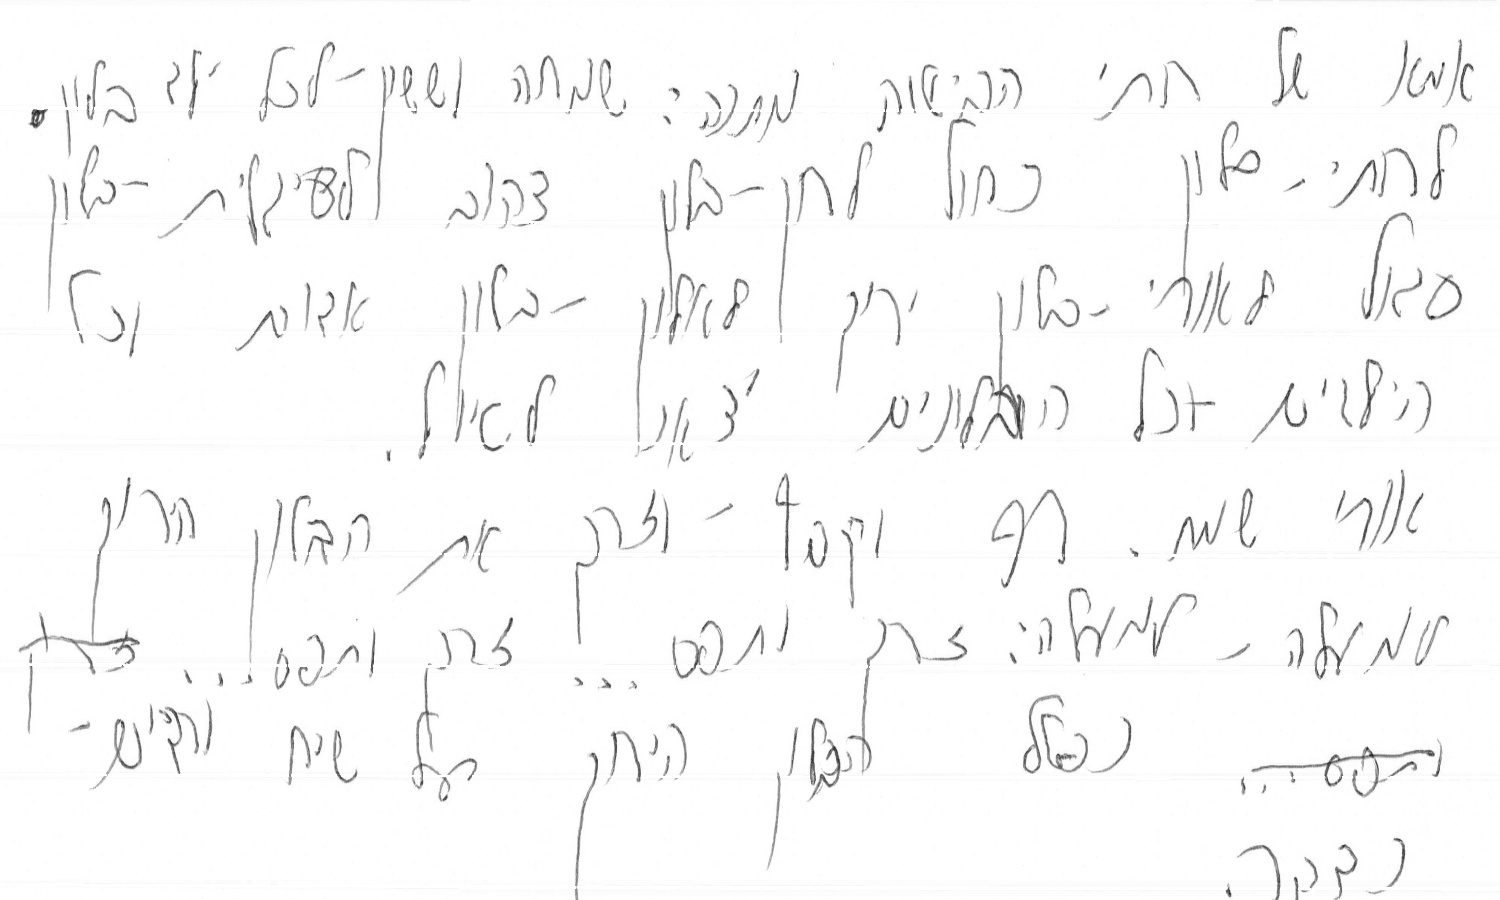 אמא של רותי הביאה מתנה: שמחה וששון-לכל ילד בלון.
לרותי - בלון כחול לרון-בלון צהוב ולסיגלית-בלון
סגול לאורי-בלון ירוק לאלון-בלון אדום וכל
הילדים וכל הבלונים יצאו לטיול.
אורי שמח. רץ וקפץ - וזרק את הבלון הירוק
למעלה - למעלה: זרק ותפס... זרק ותפס... זרק
ותפס... נפל הבלון הירוק על שיח ורקוש-
נבקר.